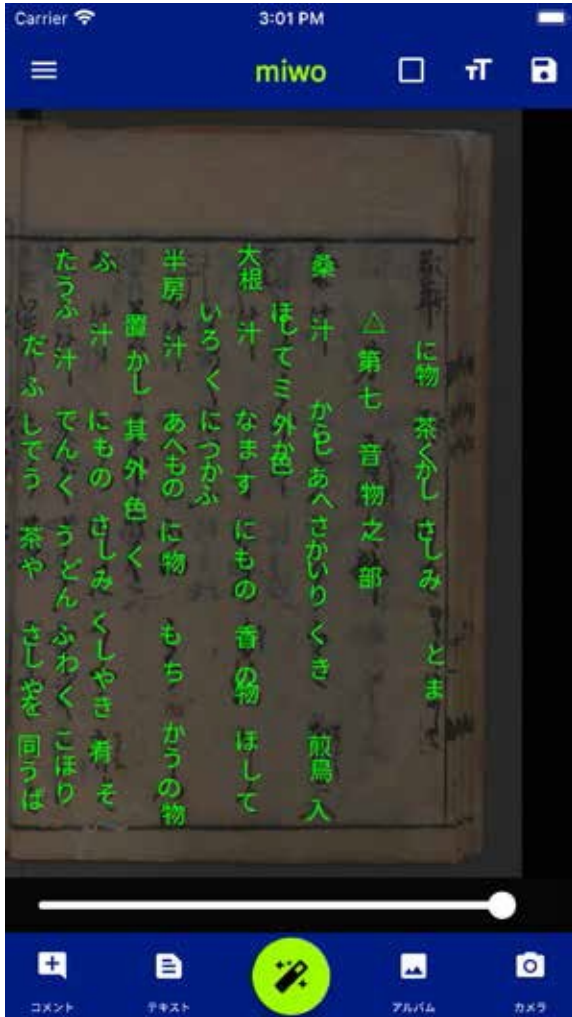 Carrier 3:01 PM
miwo
に物 茶くかし さしみ とま
△第七 音物之部
桑 汁 からしあへ さかいり くき 煎鳥 入
ほして ミ 外か色
大根 汁 なます にもの 香の物 ほして
いろく につかふ
半房 汁 あへもの に物 もち かうの物
置かし 其外色く
ふ 汁 にもの さしみ くしやき 肴 そ
たうふ 汁 でんく うどん ふわく こほり
だふ してう 茶や さしやを 同うば
コメント テキスト アルバム カメラ